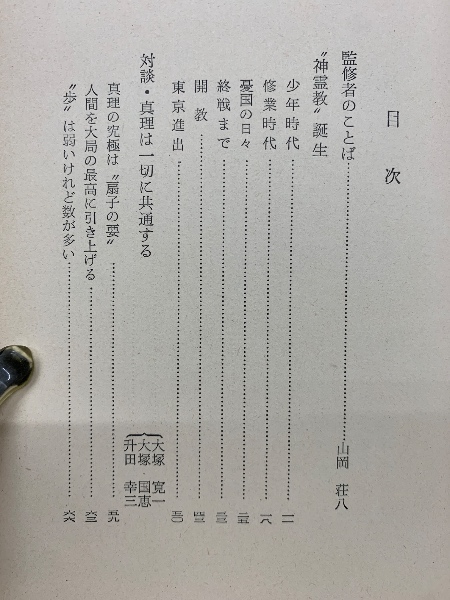 目次
監修者のことば……………山岡 荘八
“神霊教”誕生
少年時代……………一一
修業時代……………一八
憂国の日々……………二五
終戦まで……………三三
開教……………四三
東京進出……………五〇
対談・真理は一切に共通する
大塚 寛一
大塚 国恵
升田 幸三
真理の究極は“扇子の要”……………五九
人間を大局の最高に引き上げる……………六三
“歩”は弱いけれど数が多い……………六六